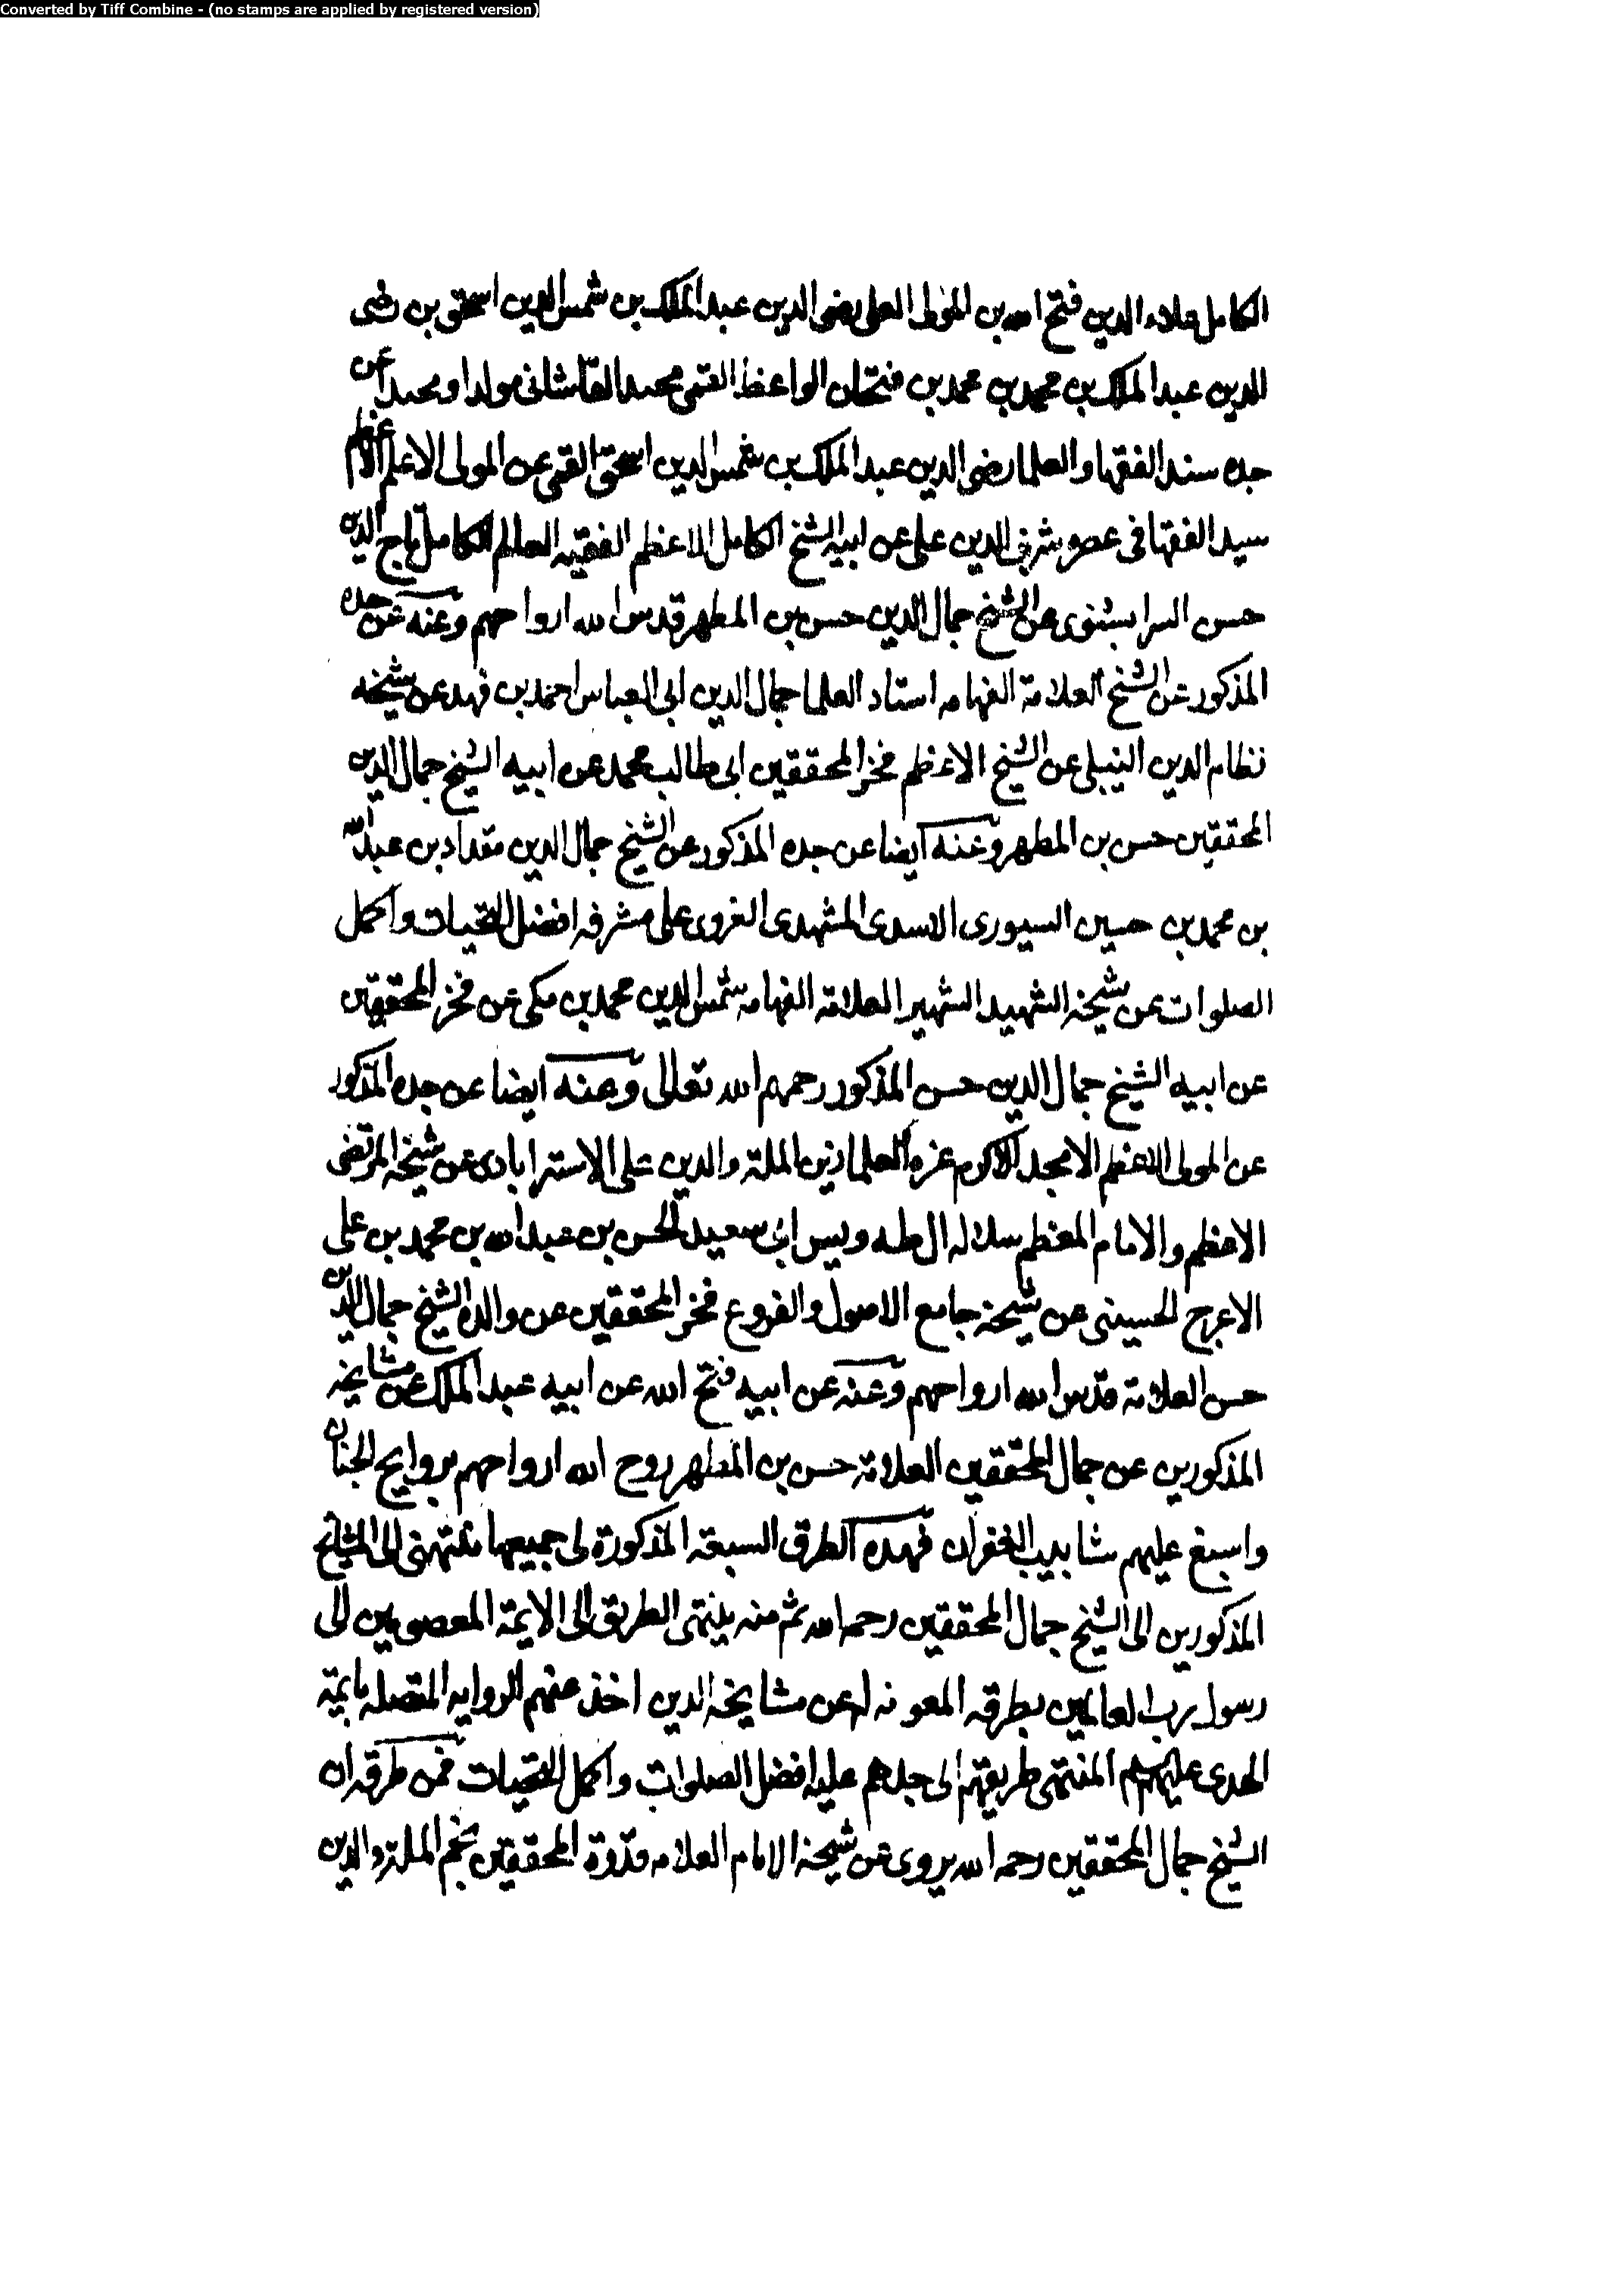 Converted by Tiff Combine - (no stamps are applied by registered version)
الكامل علاء الدين فتح الله بن المولى العلى رضى الدين عبد الملك بن شمس الدين اسحق بن رضى
الدين عبد الملك بن محمد بن محمد بن فتحان الواعظ القمى محتدا القاشانى مولدا و محتدا عن
جده سند الفقها والعلما رضى الدين عبد الملك بن شمس الدين اسحق القمى عن المولى الاعلم الاعظم
سيد الفقها فى عصره شرف الدين على عن ابيه الشيخ الكامل الاعظم الفقيه العالم الكامل تاج الدين
حسن السرابشنوى عن الشيخ جمال الدين حسن بن المطهر قدس الله ارواحهم وعنه عن جده
المذكور عن الشيخ العلامة الفهامه استاد العلما جمال الدين ابى العباس احمد بن فهد عن شيخه
نظام الدين النيلى عن الشيخ الاعظم فخر المحققين ابى طالب محمد عن ابيه الشيخ جمال الدين
المحققين حسن بن المطهر وعنه ايضا عن جده المذكور عن الشيخ جمال الدين مقداد بن عبد الله
بن محمد بن حسين السيورى الاسدى المشهدى الغروى على مشرفه افضل التحيات واكمل
الصلوات عن شيخه الشهيد الشهير العلامة الفهامه شمس الدين محمد بن مكى عن فخر المحققين
عن ابيه الشيخ جمال الدين حسن المذكور رحمهم الله تعالى وعنه ايضا عن جده المذكور
عن المولى الاعظم الامجد الاكرم غرة العلما زين الملة والدين على الاستر ابادى عن شيخه المرتضى
الاعظم والامام المعظم سلاله ال طه ويس ابى سعيد الحسن بن عبد الله بن محمد بن على
الاعرج الحسينى عن شيخه جامع الاصول والفروع فخر المحققين عن والده الشيخ جمال الدين
حسن العلامة قدس الله ارواحهم وعنه عن ابيه فتح الله عن ابيه عبد الملك عن مشايخه
المذكورين عن جمال المحققين العلامة حسن بن المطهر روح الله ارواحهم بروايح الجنان
واسبغ عليهم شابيب الغفران فهذه الطرق السبعة المذكورة لى جميعها تنتهى الى المشايخ
المذكورين الى الشيخ جمال المحققين رحمه الله ثم منه ينتهى الطريق الى الايمة المعصومين الى
رسول رب العالمين بطرقه المعونه له عن مشايخه الدين اخذ عنهم الروايه المتصله بايمة
الهدى عليهم المنتهى طريقتهم الى جدهم عليه افضل الصلوات واكمل التحيات فمن طرقه ان
الشيخ جمال المحققين رحمه الله يروى عن شيخه الامام العلامه قدوة المحققين نجم الملة والدين